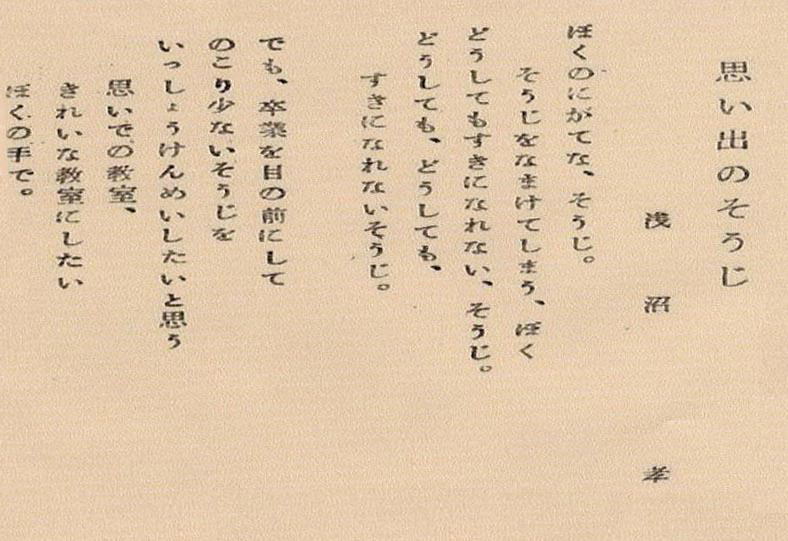 思い出のそうじ
浅沼 孝
ぼくのにがてな、そうじ。
そうじをなまけてしまう、ぼく
どうしてもすきになれない、そうじ。
どうしても、どうしても、
すきになれないそうじ。
でも、卒業を目の前にして
のこり少ないそうじを
いっしょうけんめいしたいと思う
思いでの教室、
きれいな教室にしたい
ぼくの手で。